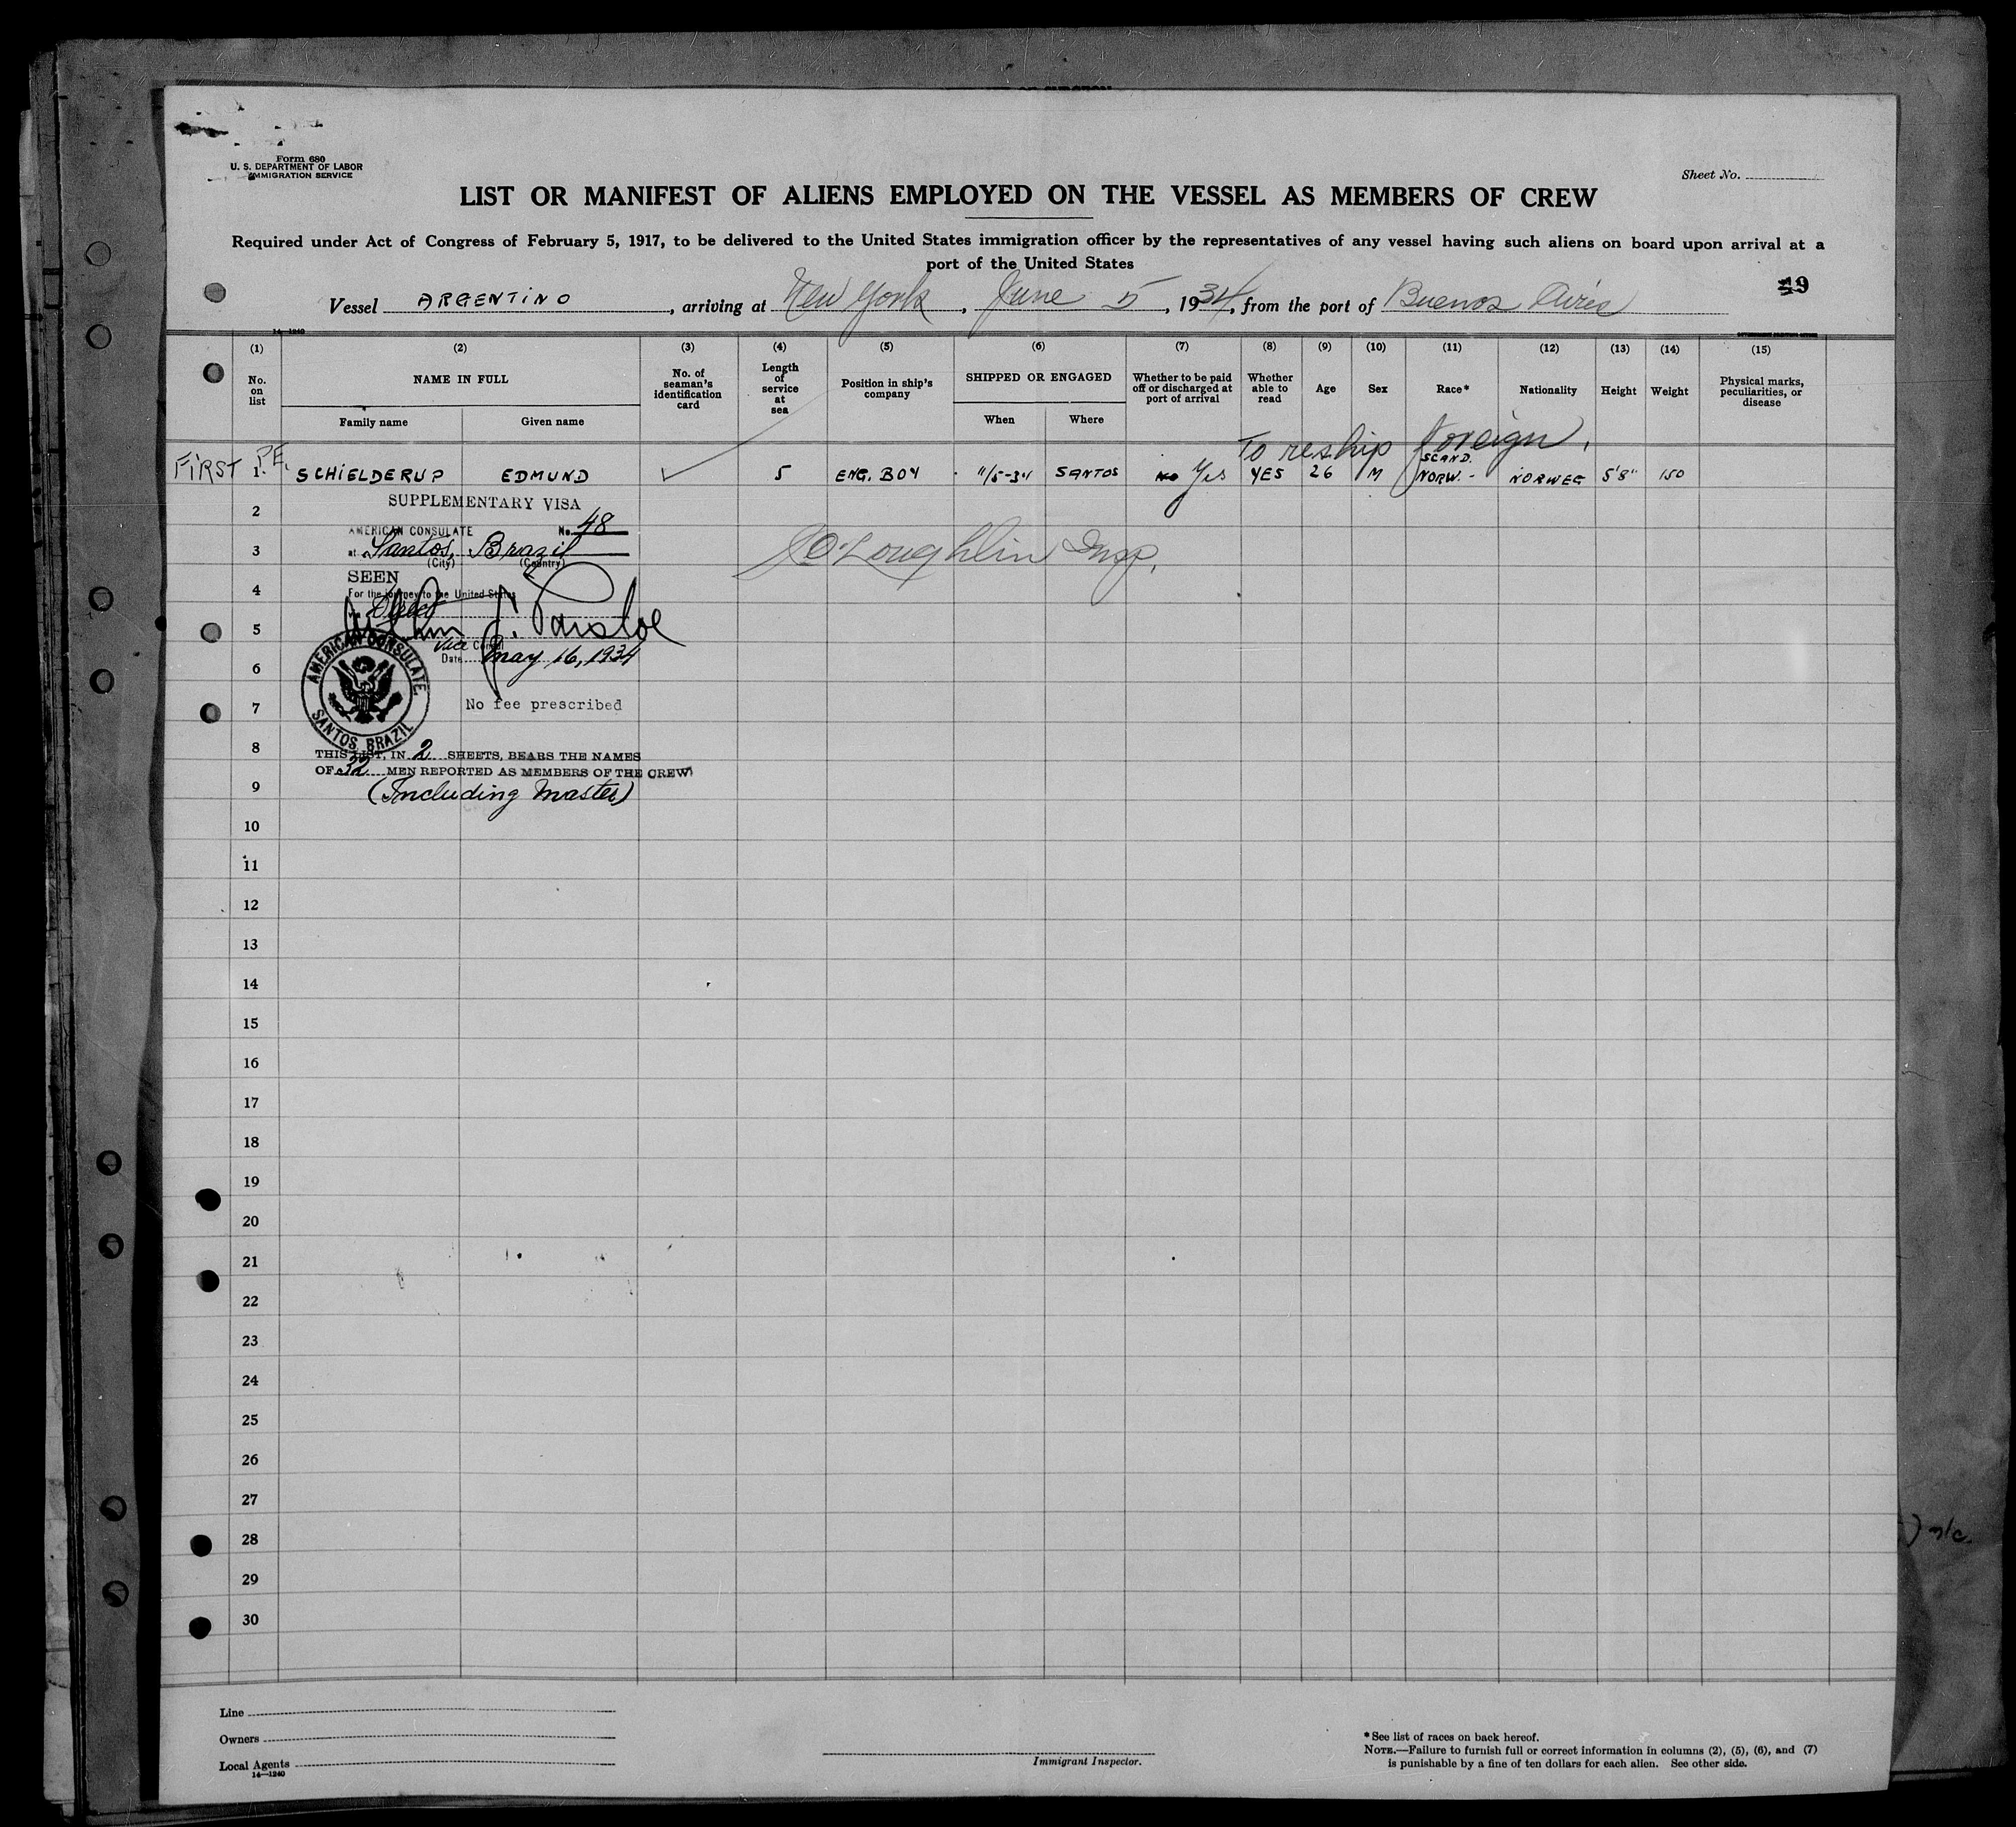 Form 680
U. S. DEPARTMENT OF LABOR
IMMIGRATION SERVICE
Sheet No.
LIST OR MANIFEST OF ALIENS EMPLOYED ON THE VESSEL AS MEMBERS OF CREW
Required under Act of Congress of February 5, 1917, to be delivered to the United States immigration officer by the representatives of any vessel having such aliens on board upon arrival at a
port of the United States
Vessel ARGENTINO, arriving at New York, June 5, 1934, from the port of Buenos Aires
14-1240
(1) (2) (3) (4) (5) (6) (7) (8) (9) (10) (11) (12) (13) (14) (15)
No. on list NAME IN FULL No. of seaman's identification card Length of service at sea Position in ship's company SHIPPED OR ENGAGED Whether to be paid off or discharged at port of arrival Whether able to read Age Sex Race* Nationality Height Weight Physical marks, peculiarities, or disease
Family name Given name When Where
To reship foreign.
FIRST P.E. 1 SCHIELDERUP EDMUND ✓ 5 ENG. BOY 11/5-34 SANTOS No Yes YES 26 M SCAND. NORW. - NORWEG 5'8" 150
SUPPLEMENTARY VISA
2
AMERICAN CONSULATE No. 48
3 at Santos, Brazil
(City) (Country)
O'Loughlin Insp.
SEEN
4 For the journey to the United States
5
Vice Consul
Date May 16, 1934
6
AMERICAN CONSULATE, SANTOS, BRAZIL
7 No fee prescribed
8 THIS LIST, IN 2 SHEETS, BEARS THE NAMES
OF 32 MEN REPORTED AS MEMBERS OF THE CREW
9 (Including Master)
10
11
12
13
14
15
16
17
18
19
20
21
22
23
24
25
26
27
28
29
30
Line
Owners
Local Agents
14-1240
Immigrant Inspector.
*See list of races on back hereof.
NOTE.—Failure to furnish full or correct information in columns (2), (5), (6), and (7)
is punishable by a fine of ten dollars for each alien. See other side.